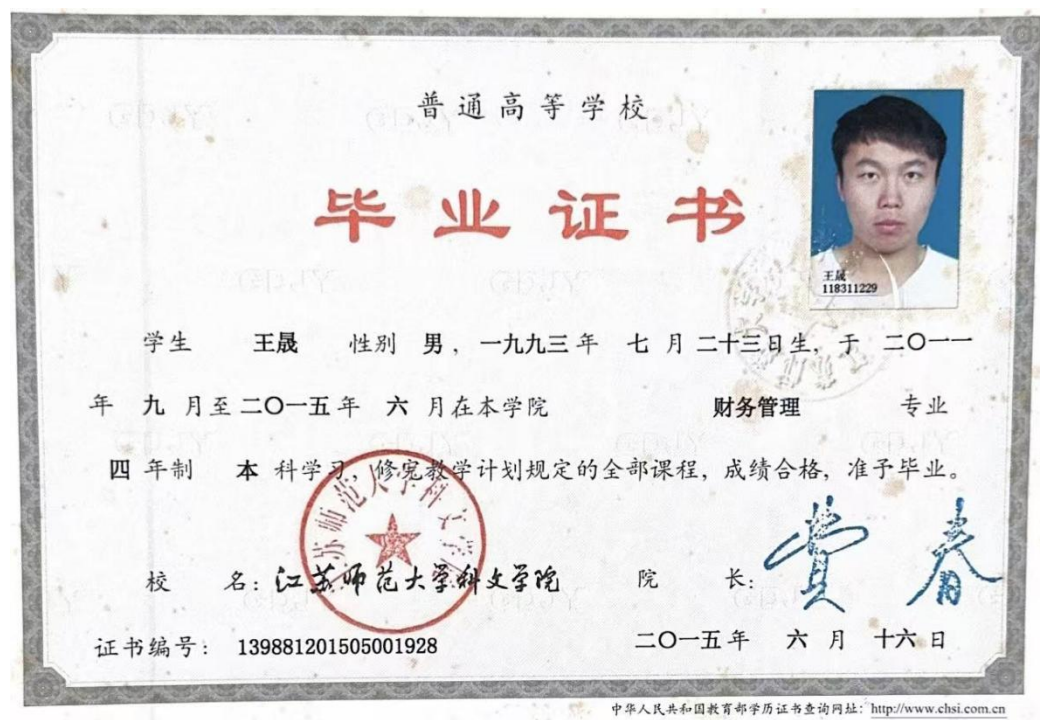 普通高等学校
毕业证书
王晟
118311229
学生 王晟 性别 男，一九九三年 七 月 二十三日生，于 二〇一一
年 九 月至 二〇一五年 六 月在本学院 财务管理 专业
四 年制 本 科学习，修完教学计划规定的全部课程，成绩合格，准予毕业。
江苏师范大学科文学院
校 名：江苏师范大学科文学院 院 长：
证书编号： 139881201505001928 二〇一五年 六 月 十六日
中华人民共和国教育部学历证书查询网址：http://www.chsi.com.cn